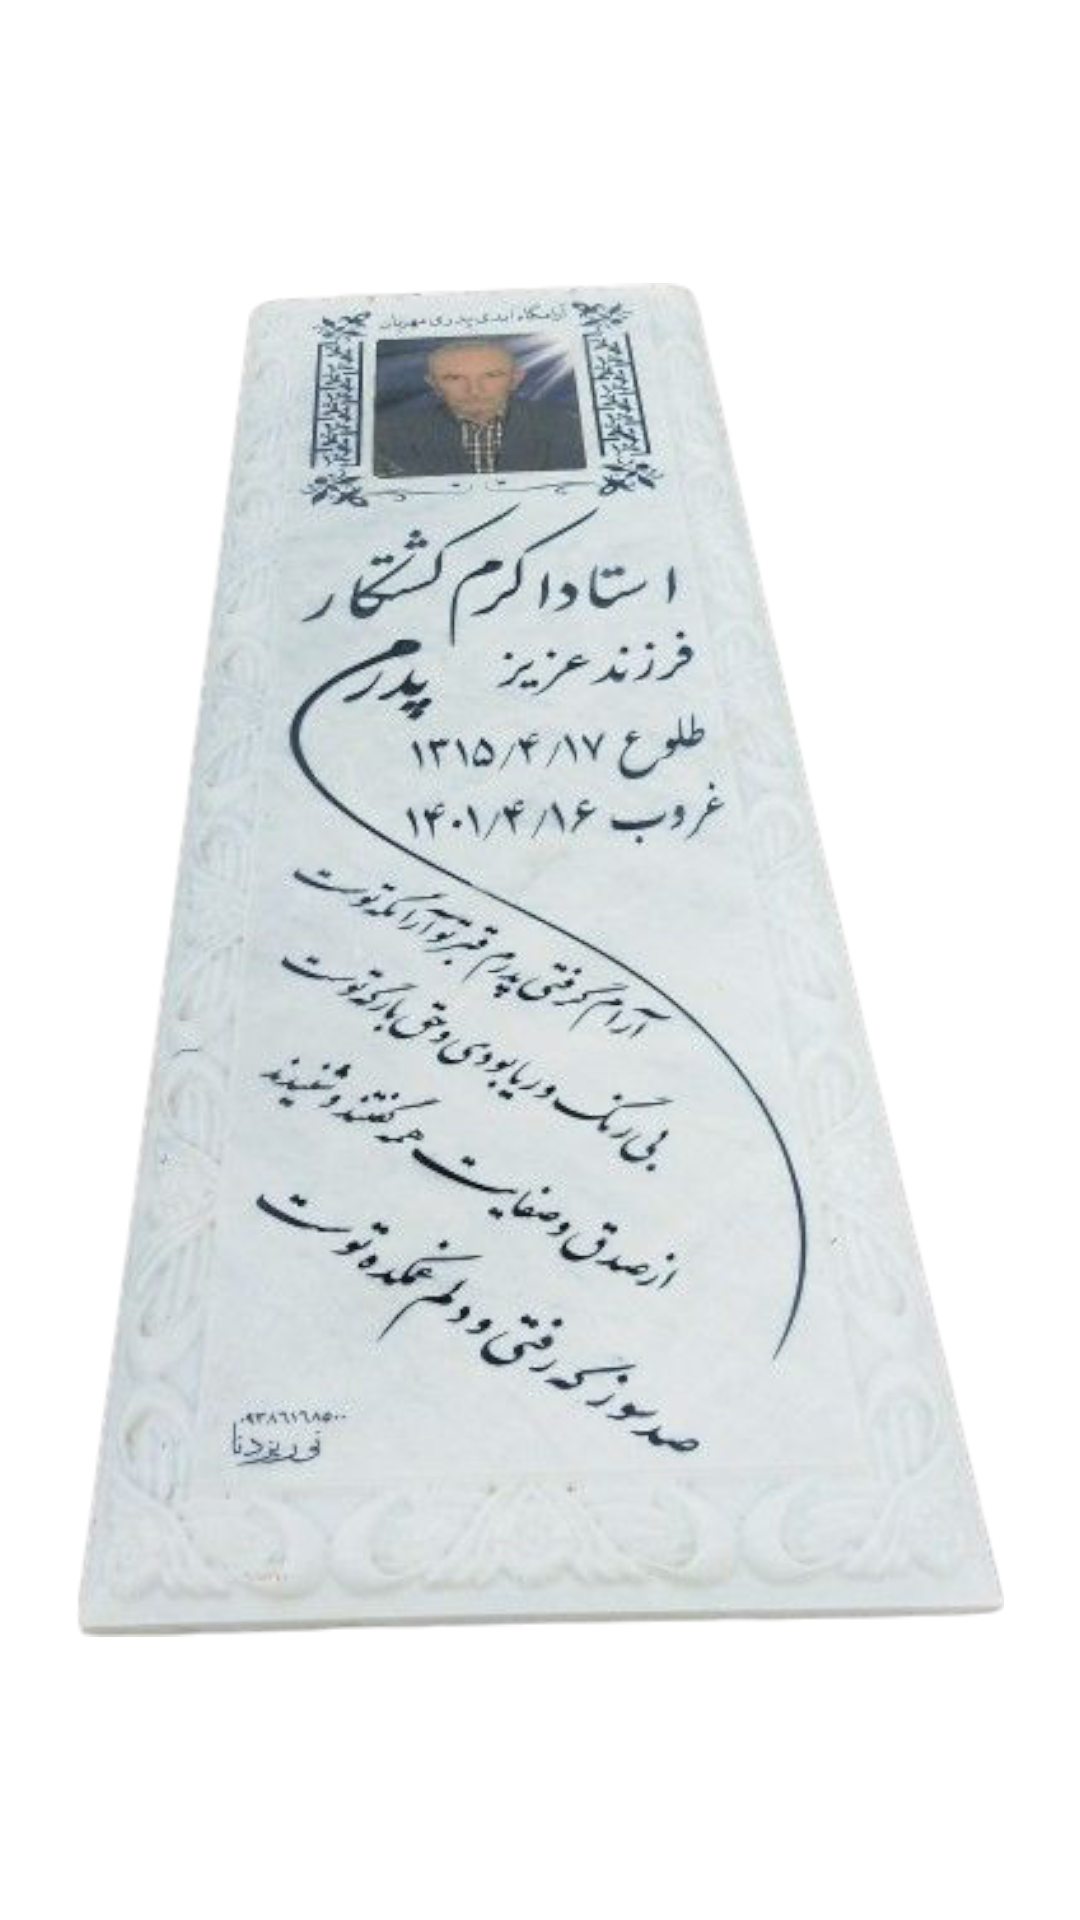 آرامگاه ابدی پدری مهربان
استاد اکرم کشتکار
فرزند عزیز
پدرم
طلوع ۱۳۱۵/۴/۱۷
غروب ۱۴۰۱/۴/۱۶
آرام گرفتی پدرم قبر تو آرامگه توست
بی رنگ و ریا بودی و حق بارگه توست
از صدق و صفایت همه گفتند و شنیدند
صد سوز که رفتی و دلم غمکده توست
۰۹۳۸۶۱۶۸۵۰۰